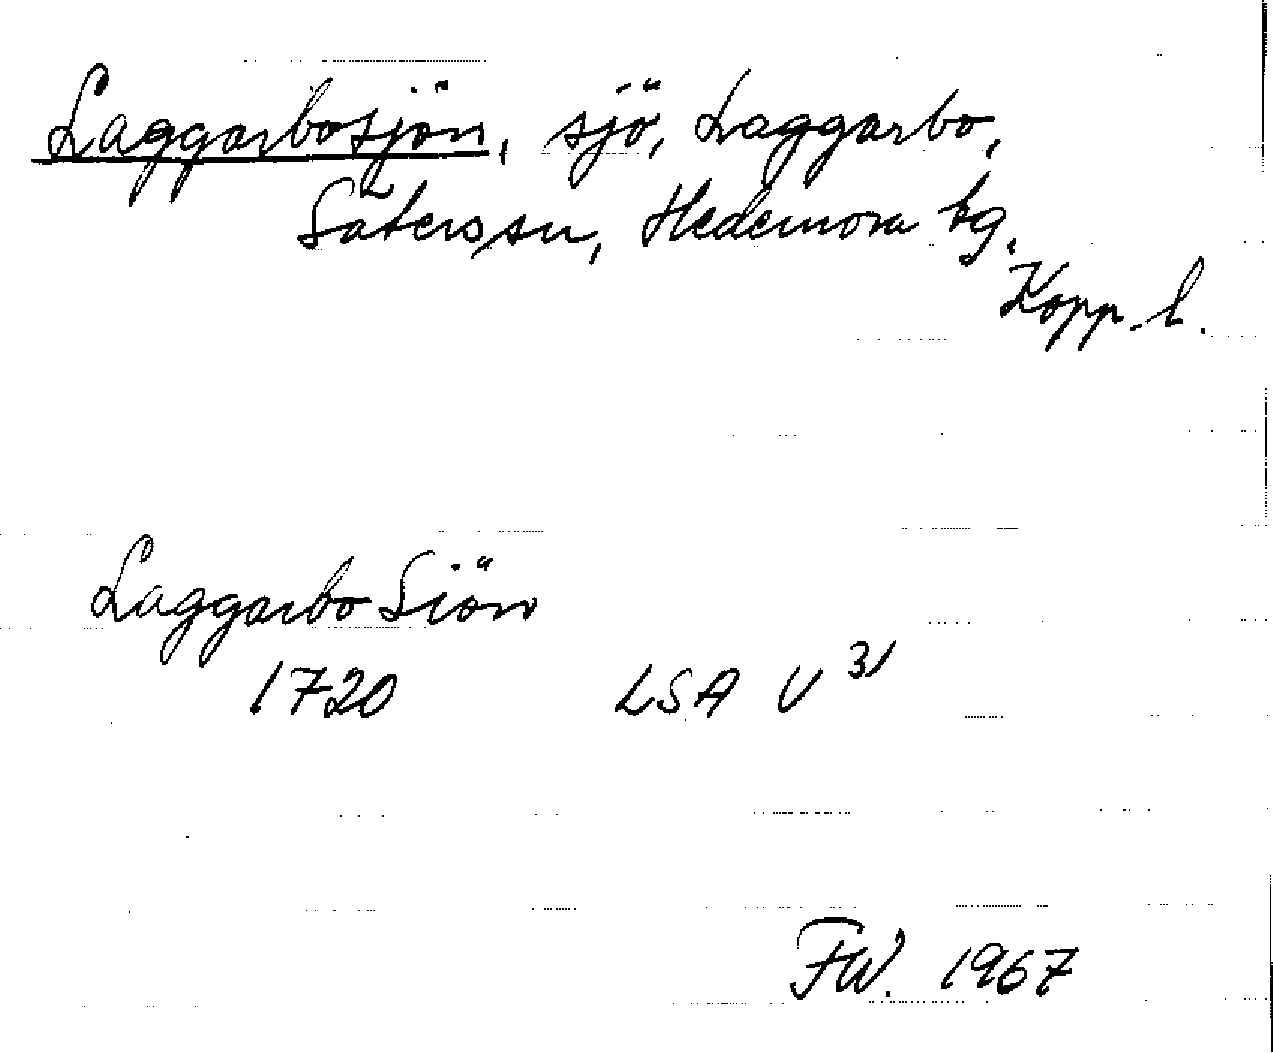 Laggarbosjön, sjö, Laggarbo,
Säters sn, Hedemora tg.
Kopp. l.
Laggarbo Siön
1720 LSA U 31
FW. 1967